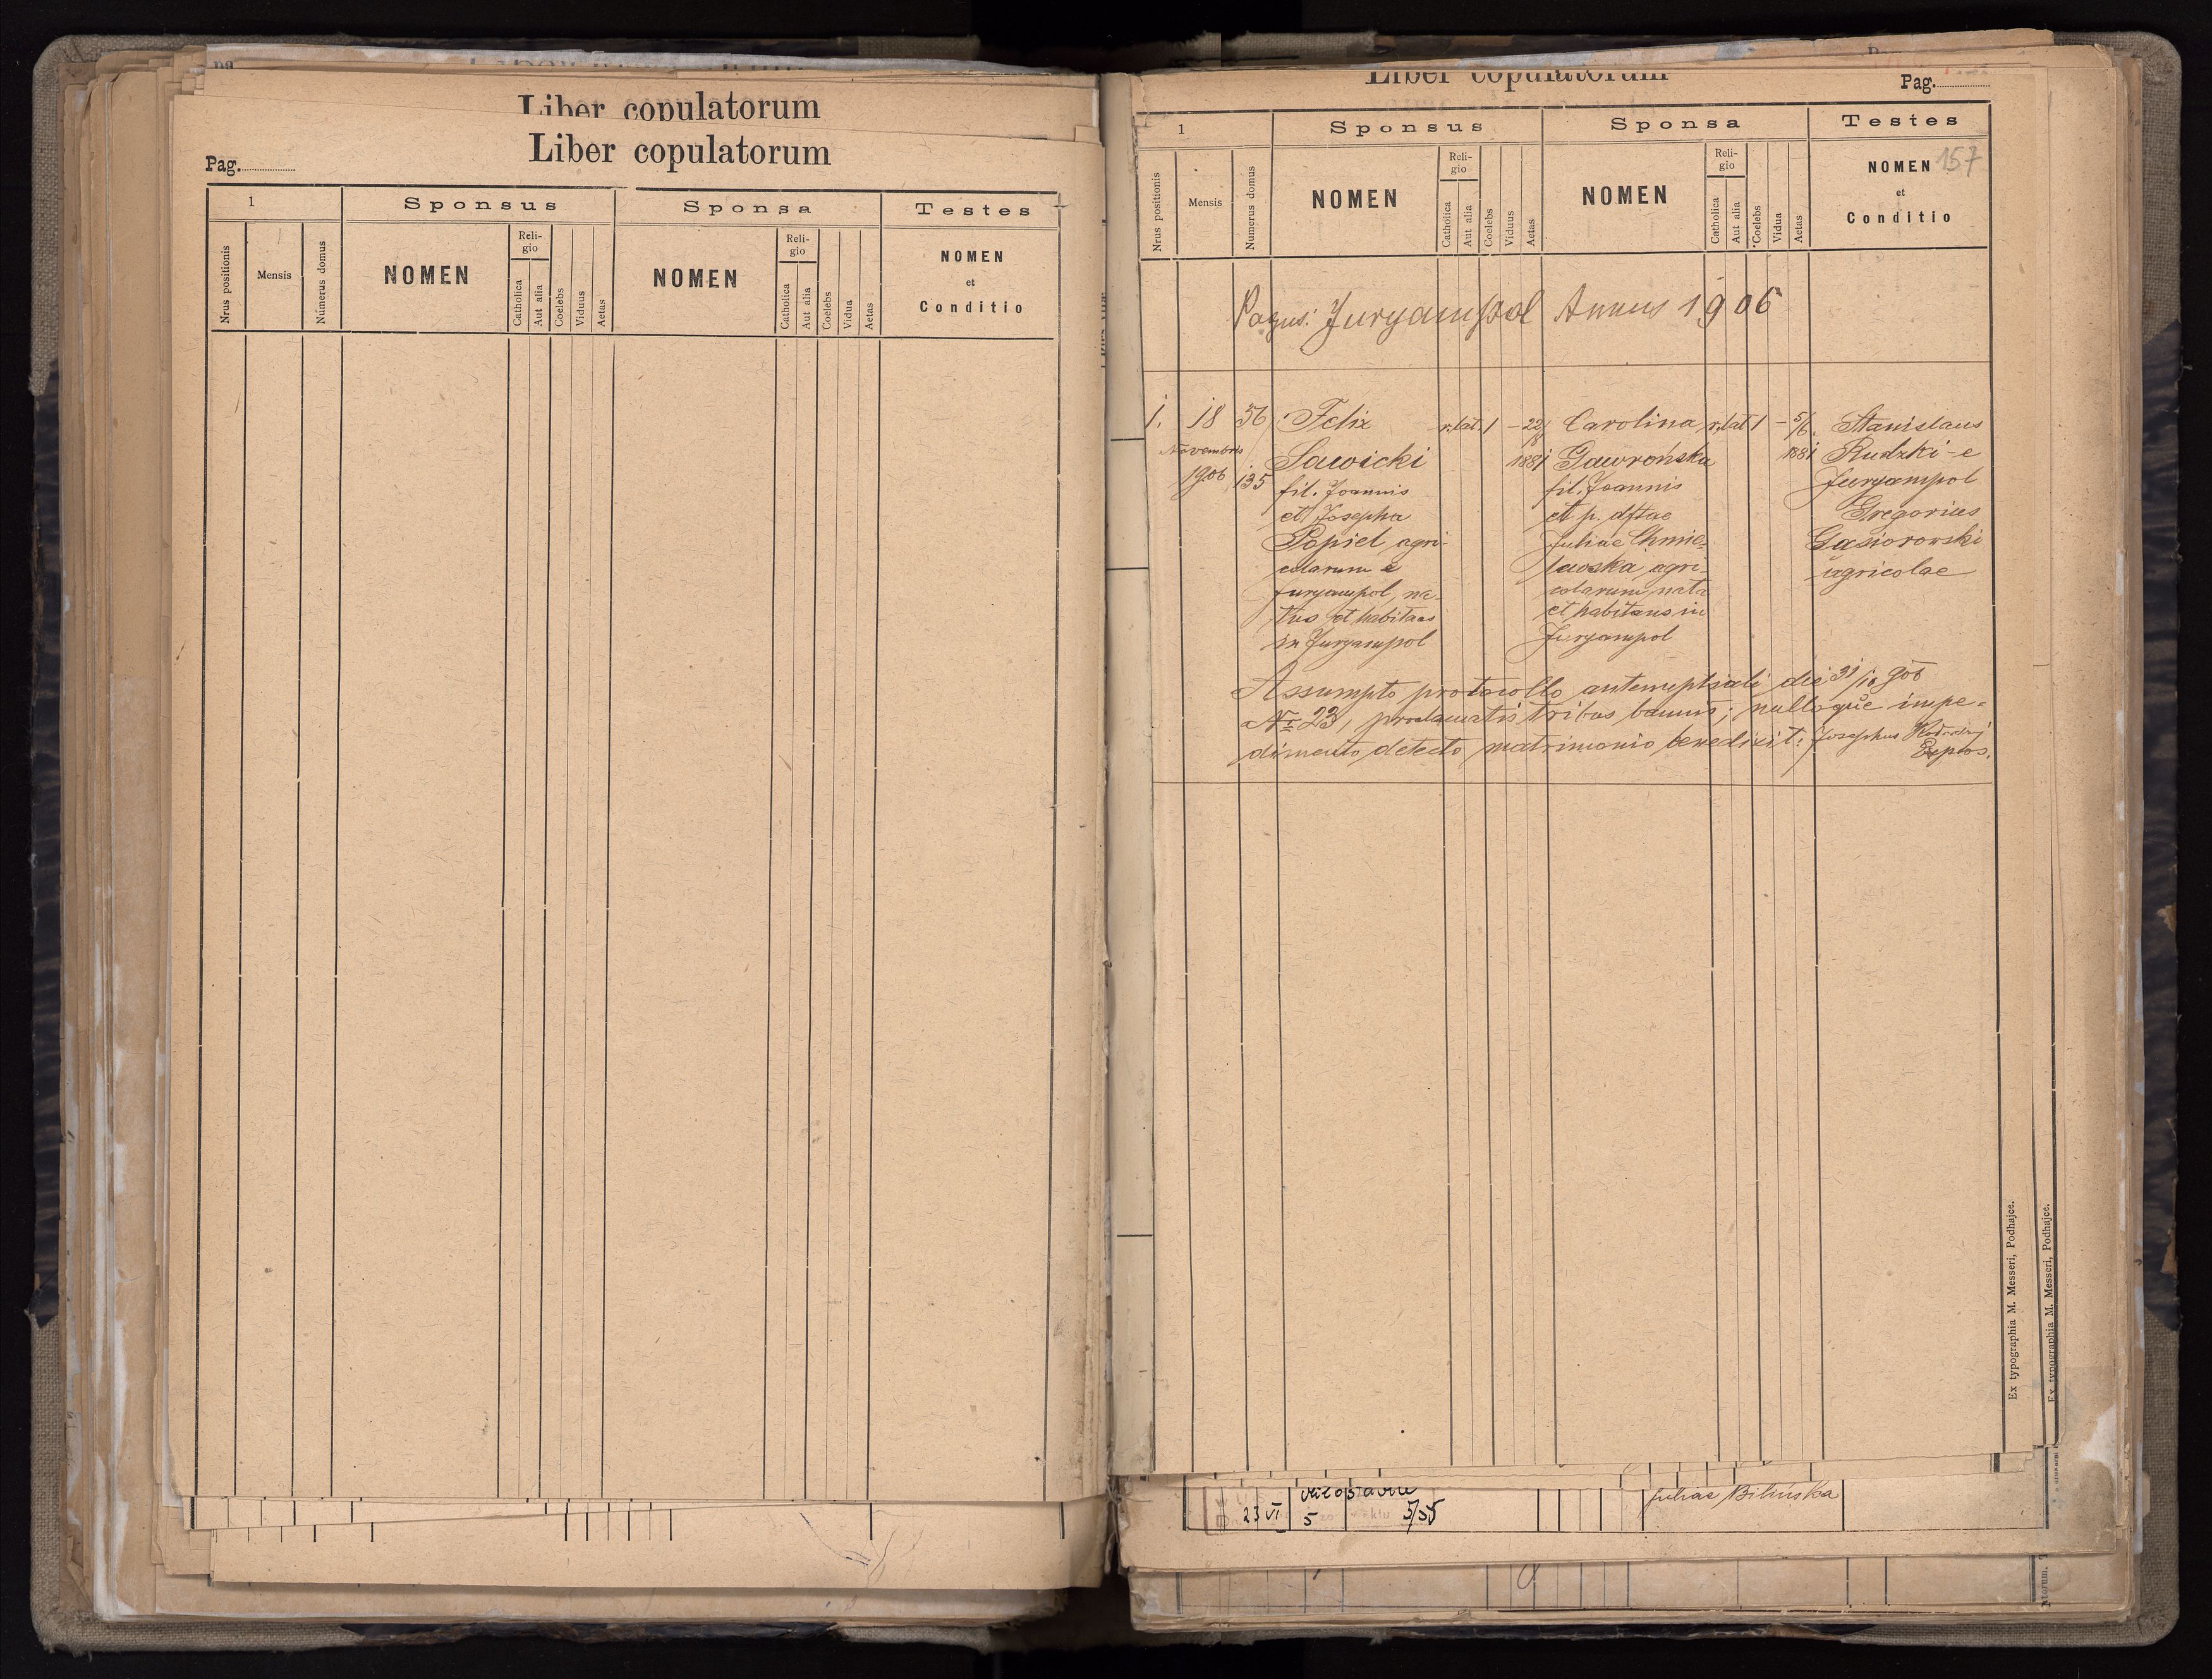 Liber copulatorum
Liber copulatorum
Pag.
1
Sponsus
Sponsa
Testes
Nrus positionis
Mensis
Númerus domus
NOMEN
Reli-
gio
Catholica
Aut alia
Coelebs
Viduus
Aetas
NOMEN
Reli-
gio
Catholica
Aut alia
Coelebs
Vidua
Aetas
NOMEN
et
Conditio
Liber copulatorum
Pag.
1
Sponsus
Sponsa
Testes
Nrus positionis
Mensis
Numerus domus
NOMEN
Reli-
gio
Catholica
Aut alia
Coelebs
Viduus
Aetas
NOMEN
Reli-
gio
Catholica
Aut alia
Coelebs
Vidua
Aetas
NOMEN 157
et
Conditio
Pagus: Juryampol Annus 1906
1. 18
Novembris
1906
56
135
Felix
Sawicki
fil. Joannis
et Josepha
Popiel agri-
colarum e
Juryampol, na-
tus et habitans
in Juryampol
r. lat. 1 - 22/
/8
1881
Carolina
Gawrońska
fil. Joannis
et p. dftae
Juliae Chmie-
lowska, agri-
colarum, nata
et habitans in
Juryampol
r. lat 1 - 5/
/6
1881
Stanislaus
Rudzki - e
Juryampol
Gregorius
Gasiorowski
agricolae
Assumpto protocollo antenuptiali die 31/10 906
Nr 23, proclamatis tribus bannis; nulloque impe-
dimento detecto matrimonio benedixit: Josephus
Expos.
Ex typographia M. Messeri, Podhajce.
Ex typographia M. Messeri, Podhajce.
23 VI
5
5/55
Juliae Bilińska